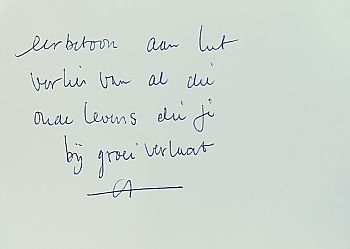 eerbetoon aan het
verlies van al die
oude levens die je
bij groei verlaat